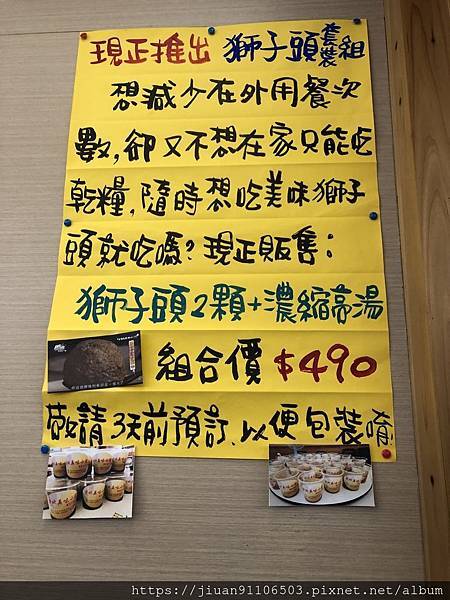 現正推出 獅子頭套裝組
想減少在外用餐次
數,卻又不想在家只能吃
乾糧,隨時想吃美味獅子
頭就吃嗎?現正販售:
獅子頭2顆+濃縮高湯
組合價 $490
敬請3天前預訂、以便包裝唷
https://jiuan91106503.pixnet.net/album